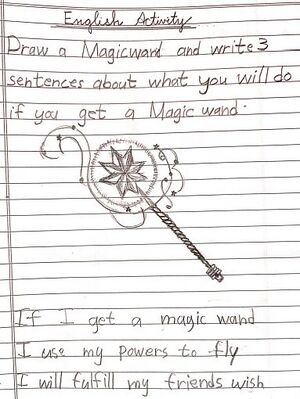 English Activity
Draw a Magicwand and write 3
sentences about what you will do
if you get a Magic wand.
If I get a magic wand
I use my powers to fly
I will fulfill my friends wish